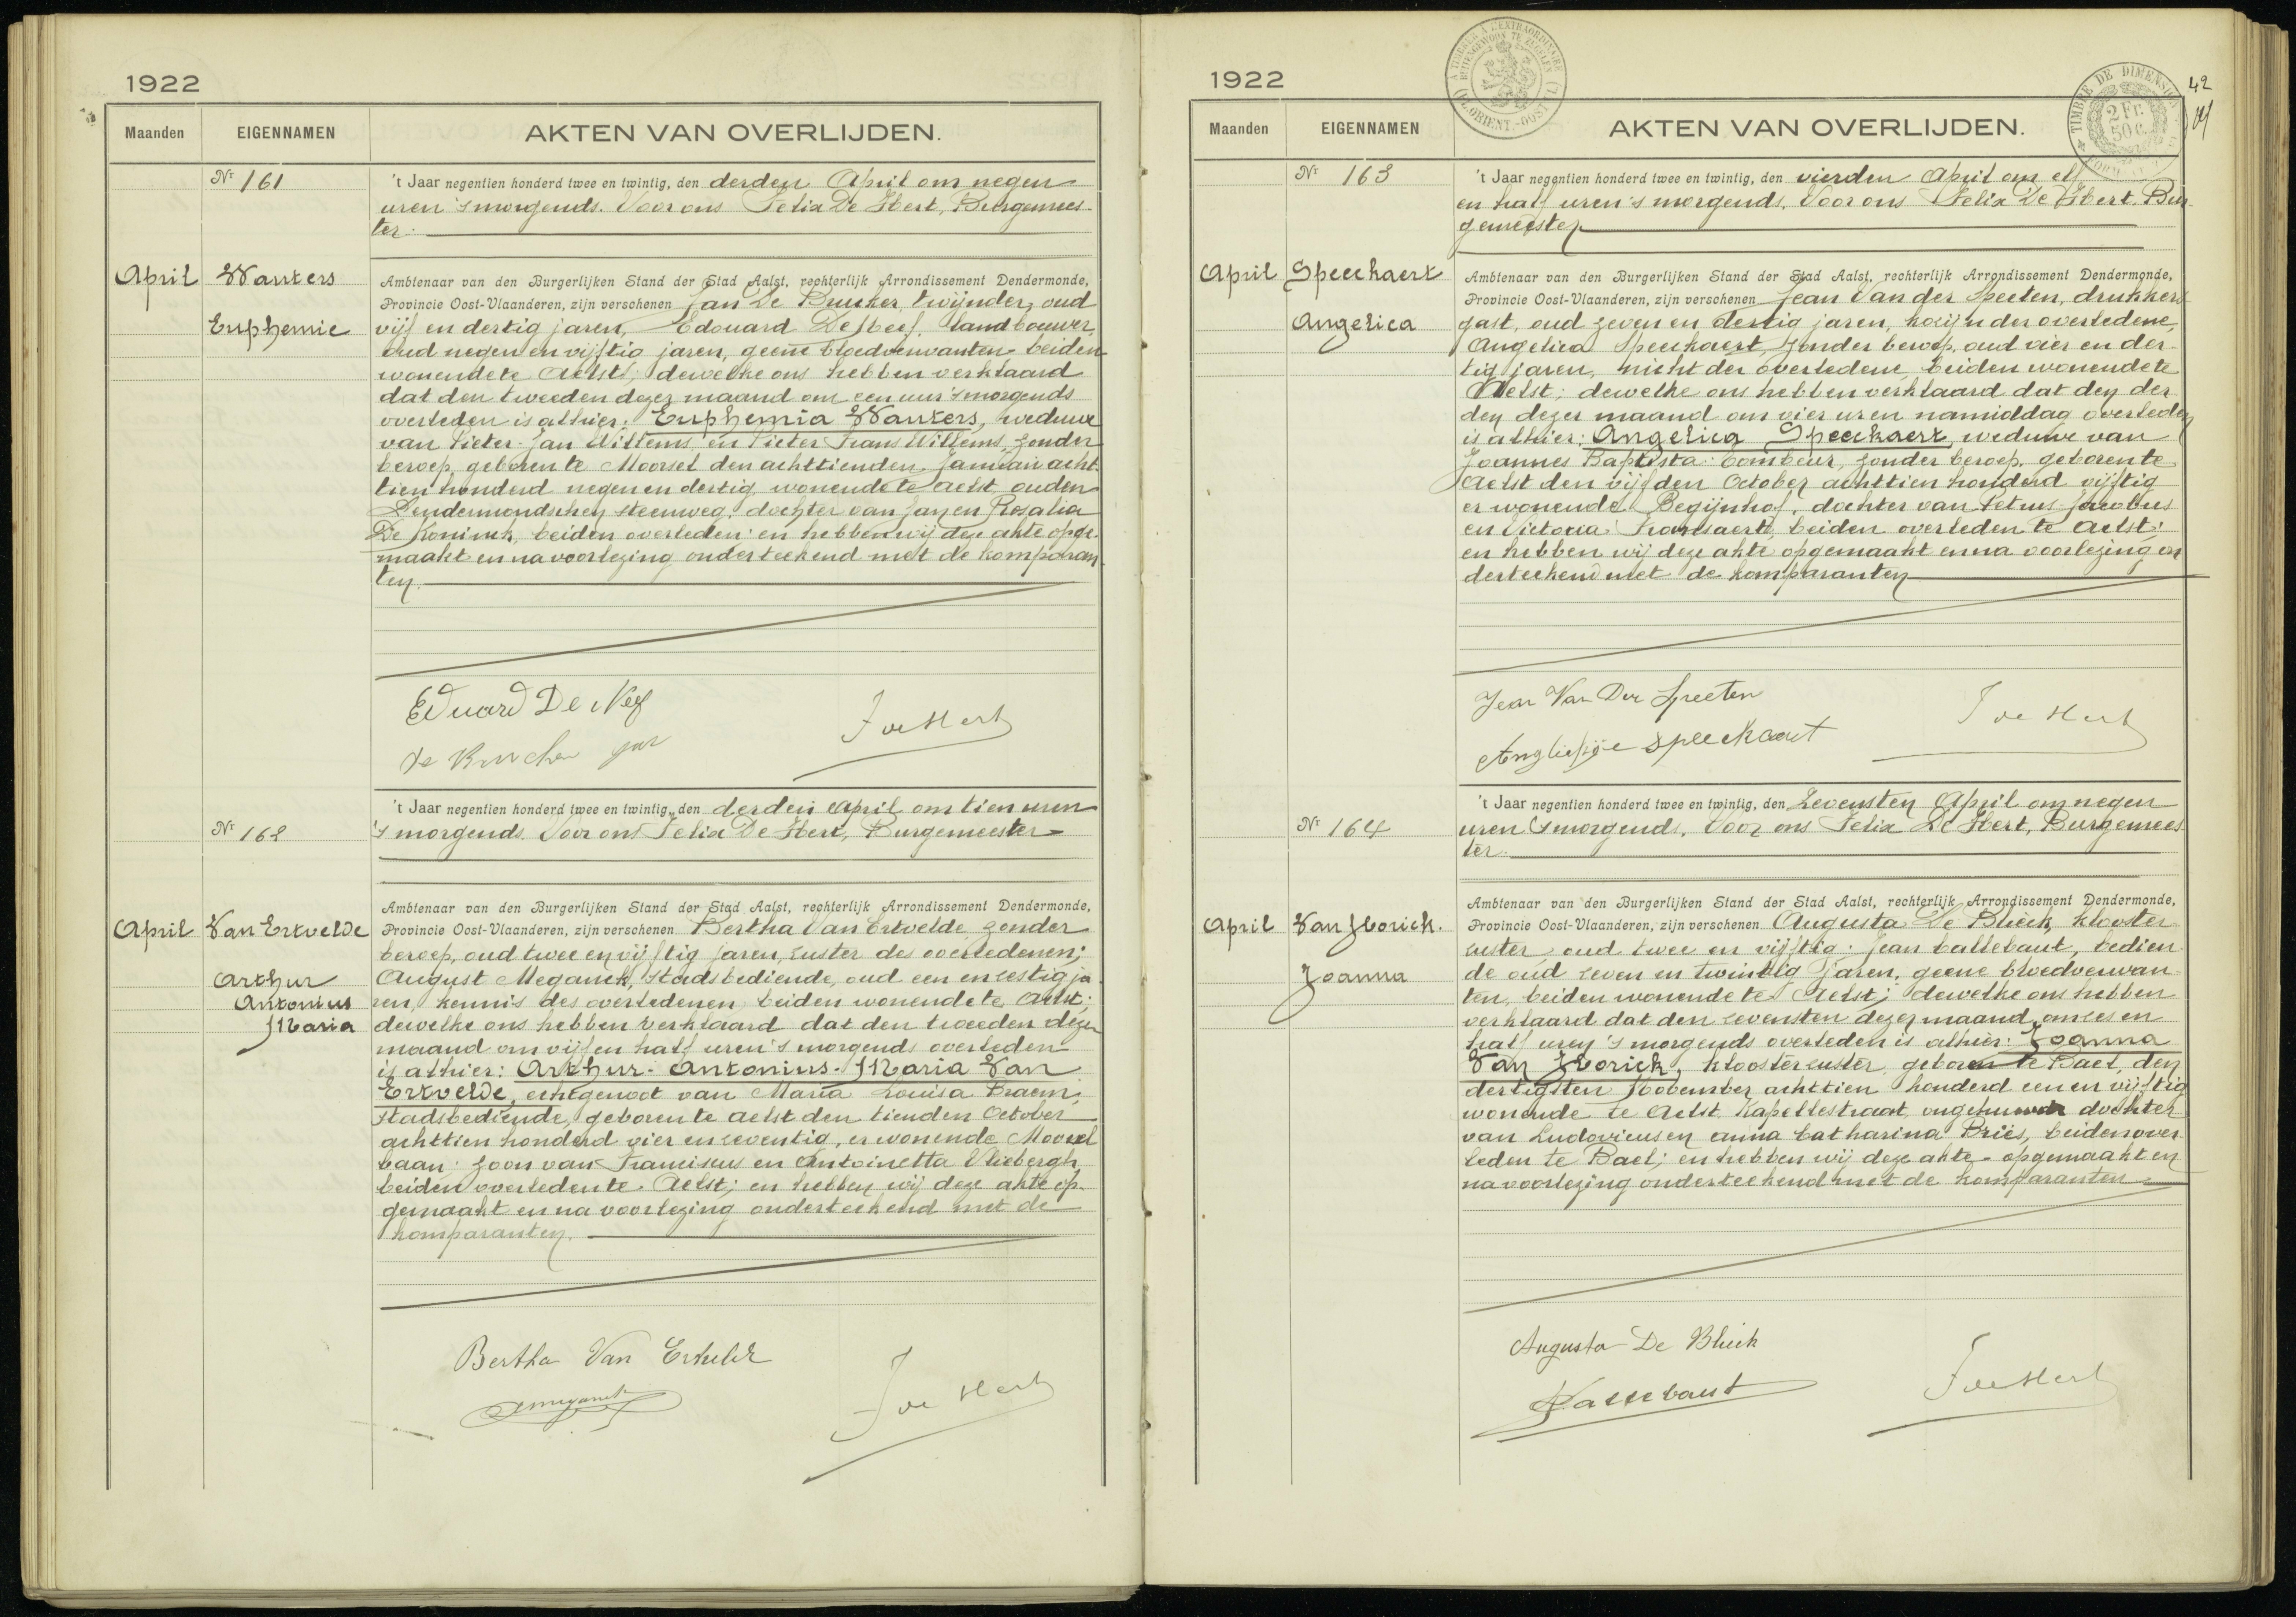 1922
Maanden EIGENNAMEN AKTEN VAN OVERLIJDEN.
Nr 161
't Jaar negentien honderd twee en twintig, den derden April om negen
uren 's morgends. Voor ons Felix De Hert, Burgemees-
ter.
April Wauters
Euphemie
Ambtenaar van den Burgerlijken Stand der Stad Aalst, rechterlijk Arrondissement Dendermonde,
Provincie Oost-Vlaanderen, zijn verschenen Jan De Brucker, twijnder, oud
vijf en dertig jaren, Edouard De Neef, landbouwer,
oud negen en vijftig jaren, geene bloedverwanten beiden
wonende te Aelst; dewelke ons hebben verklaard
dat den tweeden dezer maand om een uur 's morgends
overleden is alhier: Euphemia Wauters, weduwe
van Pieter-Jan Willems en Pieter Frans Willems, zonder
beroep, geboren te Moorsel den achttienden Januari acht-
tien honderd negen en dertig, wonende te Aelst, ouden
Dendermondschen steenweg; dochter van Jan en Rosalia
De Koninck, beiden overleden; en hebben wij deze akte opge-
maakt en na voorlezing onderteekend met de komparan-
ten.
Eduard De Nef
De Brucker Jan
F De Hert
Nr 162
't Jaar negentien honderd twee en twintig, den derden April om tien uren
's morgends. Voor ons Felix De Hert, Burgemeester
April Van Ertvelde
Arthur
Antonius
Maria
Ambtenaar van den Burgerlijken Stand der Stad Aalst, rechterlijk Arrondissement Dendermonde,
Provincie Oost-Vlaanderen, zijn verschenen Bertha Van Ertvelde, zonder
beroep, oud twee en vijftig jaren, zuster des overledenen;
August Meganck, Stadsbediende, oud een en sestig ja-
ren, kennis des overledenen, beiden wonende te Aelst;
dewelke ons hebben verklaard dat den tweeden dezer
maand om vijf en half uren 's morgends overleden
is alhier: Arthur-Antonius-Maria Van
Ertvelde, echtgenoot van Maria Louisa Praem,
stadsbediende, geboren te Aelst den tienden October
achttien honderd vier en seventig, er wonende Moorsel
baan; zoon van Franciscus en Antoinetta Vliebergh,
beiden overleden te Aelst; en hebben wij deze akte op-
gemaakt en na voorlezing onderteekend met de
komparanten.
Bertha Van Ertvelde
Ameganck
F De Hert
1922
42
A TIMBRER A L'EXTRAORDINAIRE
BUITENGEWOON TE ZEGELEN
(FL. ORIENT.-OOST VL.)
TIMBRE DE DIMENSION
2 Fr. 50 c.
Maanden EIGENNAMEN AKTEN VAN OVERLIJDEN.
Nr 163
't Jaar negentien honderd twee en twintig, den vierden April om elf
en half uren 's morgends. Voor ons Felix De Hert, Bur-
gemeester
April Speeckaert
Angelica
Ambtenaar van den Burgerlijken Stand der Stad Aalst, rechterlijk Arrondissement Dendermonde,
Provincie Oost-Vlaanderen, zijn verschenen Jean Van der Speeten, drukkers
gast, oud zeven en dertig jaren, kozijn der overledene,
Angelica Speeckaert, zonder beroep, oud vier en der-
tig jaren, nicht der overledene, beiden wonende te
Aelst; dewelke ons hebben verklaard dat den der-
den dezer maand om vier uren namiddag overleden
is alhier: Angelica Speeckaert, weduwe van
Joannes Baptista Combeur, zonder beroep, geboren te
Aelst den vijfden October achttien honderd vijftig
er wonende Begijnhof, dochter van Petrus-Jacobus
en Victoria Fransaert, beiden overleden te Aelst;
en hebben wij deze akte opgemaakt en na voorlezing on-
derteekend met de komparanten
Jean Van Der Speeten
Angelieque Speeckaert
F De Hert
Nr 164
't Jaar negentien honderd twee en twintig, den Zevensten April om negen
uren 's morgends. Voor ons Felix De Hert, Burgemees-
ter.
April Van Horick.
Joanna
Ambtenaar van den Burgerlijken Stand der Stad Aalst, rechterlijk Arrondissement Dendermonde,
Provincie Oost-Vlaanderen, zijn verschenen Augusta De Blieck, klooster
zuster, oud twee en vijftig; Jean Callebaut, bedien-
de oud zeven en twintig jaren, geene bloedverwan-
ten, beiden wonende te Aelst; dewelke ons hebben
verklaard dat den sevensten dezer maand om ses en
half uren 's morgends overleden is alhier: Joanna
Van Horick, kloosterzuster, geboren te Bael, den
dertigsten November achttien honderd een en vijftig
wonende te Aelst, Kapellestraat, ongehuwde dochter
van Ludovicus en Anna Catharina Briës, beiden over-
leden te Bael; en hebben wij deze akte opgemaakt en
na voorlezing onderteekend met de komparanten.
Augusta De Blieck
J Callebaut
F De Hert